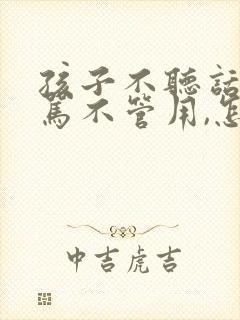 孩子不聽話
罵不管用,怎
中吉虎吉